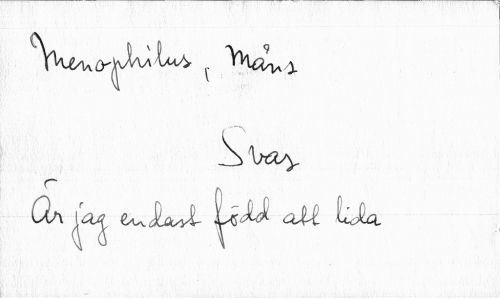 Menophilus, Måns
Svar
Är jag endast född att lida